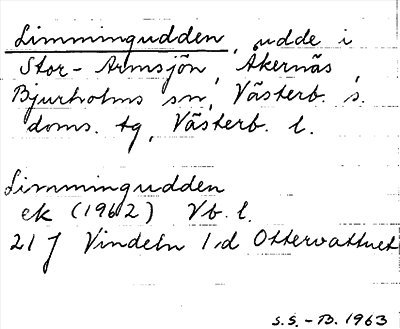 Limmingudden, udde i
Stor-Armsjön, Åkernäs,
Bjurholms sn, Västerb. s.
doms. tg, Västerb. l.
Limmingudden
ek (1962) Vb. l.
21 J Vindeln 1d Ottervattnet
S.S. - B. 1963